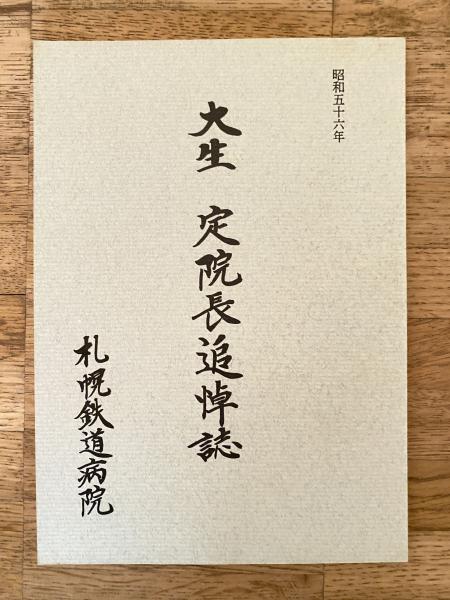 昭和五十六年
大生 定院長追悼誌
札幌鉄道病院